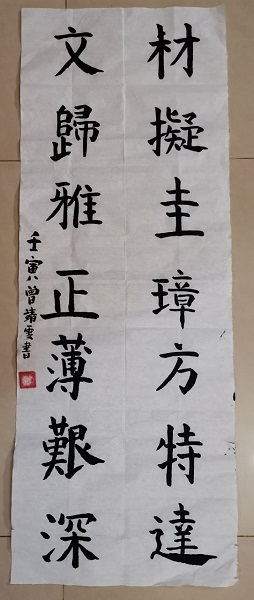 材擬圭璋方特達
文歸雅正薄艱深
壬寅八曾靖雯書